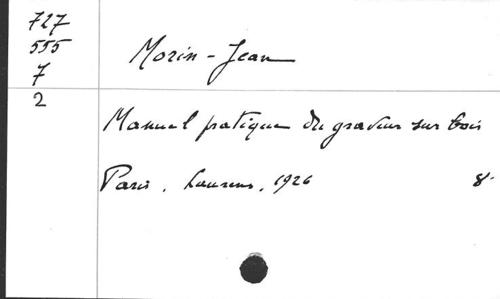 727
555
7
2
Morin - Jean
Manuel pratique du graveur sur bois
Paris, Laurens, 1926 8°